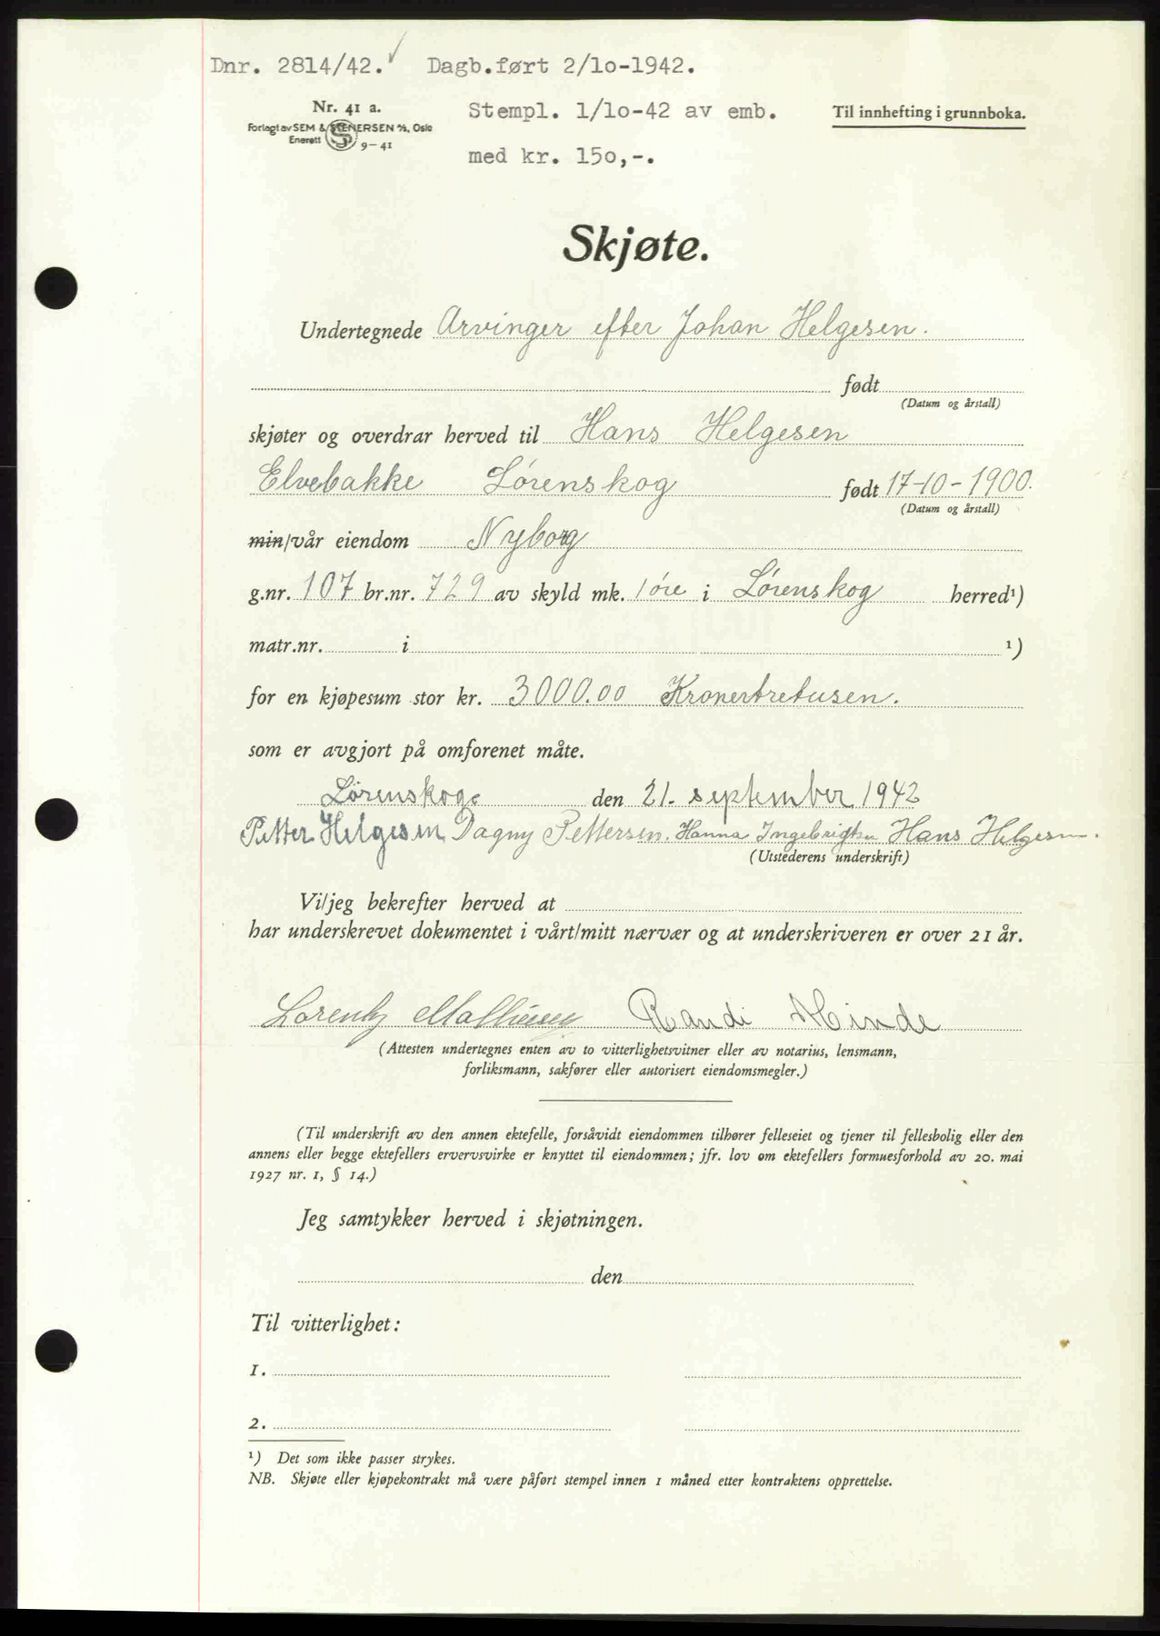 Dnr. 2814/42. Dagb.ført 2/10-1942.
Nr. 41 a.
Stempl. 1/10-42 av emb.
Til innhefting i grunnboka.
Forlagt av SEM & STENERSEN A/S, Oslo
Enerett 9-41
med kr. 150,-.
Skjøte.
Undertegnede Arvinger efter Johan Helgesen.
født
(Datum og årstall)
skjøter og overdrar herved til Hans Helgesen
Elvebakke Lørenskog født 17-10-1900.
(Datum og årstall)
min/vår eiendom Nyborg
g.nr. 107 br.nr. 729 av skyld mk. 1 øre i Lørenskog herred¹)
matr.nr. i ¹)
for en kjøpesum stor kr. 3000.00 Kronertretusen.
som er avgjort på omforenet måte.
Lørenskog. den 21. september 1942
Petter Helgesen Dagny Pettersen. Hanna Ingebrigtsen Hans Helgesen.
(Utstederens underskrift)
Vi/jeg bekrefter herved at
har underskrevet dokumentet i vårt/mitt nærvær og at underskriveren er over 21 år.
Lorentz Randi Minde
(Attesten undertegnes enten av to vitterlighetsvitner eller av notarius, lensmann,
forliksmann, sakfører eller autorisert eiendomsmegler.)
(Til underskrift av den annen ektefelle, forsåvidt eiendommen tilhører felleseiet og tjener til fellesbolig eller den
annens eller begge ektefellers ervervsvirke er knyttet til eiendommen; jfr. lov om ektefellers formuesforhold av 20. mai
1927 nr. 1, § 14.)
Jeg samtykker herved i skjøtningen.
den
Til vitterlighet:
1.
2.
¹) Det som ikke passer strykes.
NB. Skjøte eller kjøpekontrakt må være påført stempel innen 1 måned etter kontraktens opprettelse.